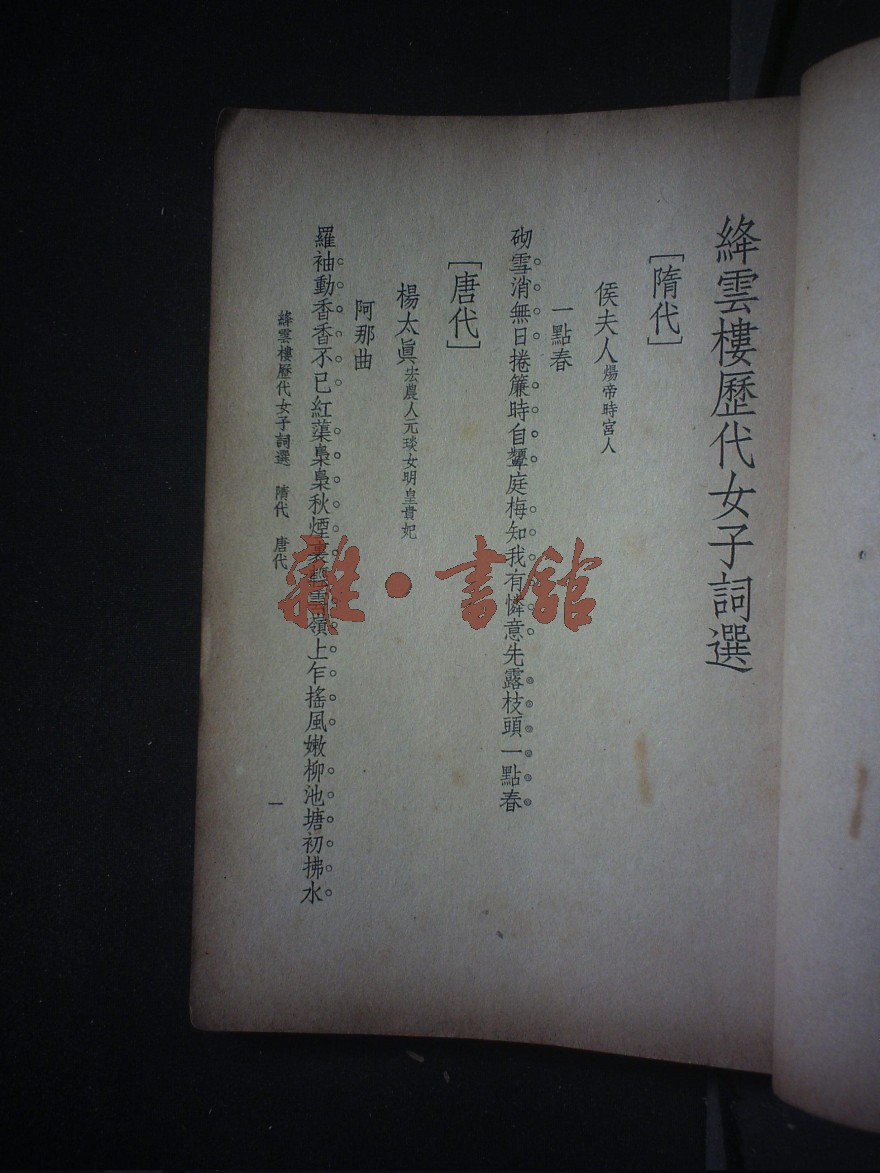 絳雲樓歷代女子詞選
[隋代]
侯夫人 煬帝時宮人
一點春
砌雪消無日捲簾時自顰庭梅知我有憐意先露枝頭一點春
[唐代]
楊太眞 宏農人元琰女明皇貴妃
阿那曲
羅袖動香香不已紅蕖裊裊秋煙裏輕雲嶺上乍搖風嫩柳池塘初拂水
絳雲樓歷代女子詞選 隋代 唐代 一
雜·書館